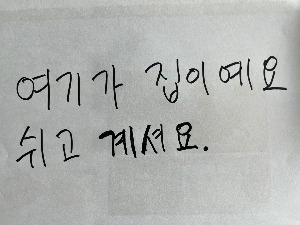 여기가 집이예요
쉬고 계셔요.